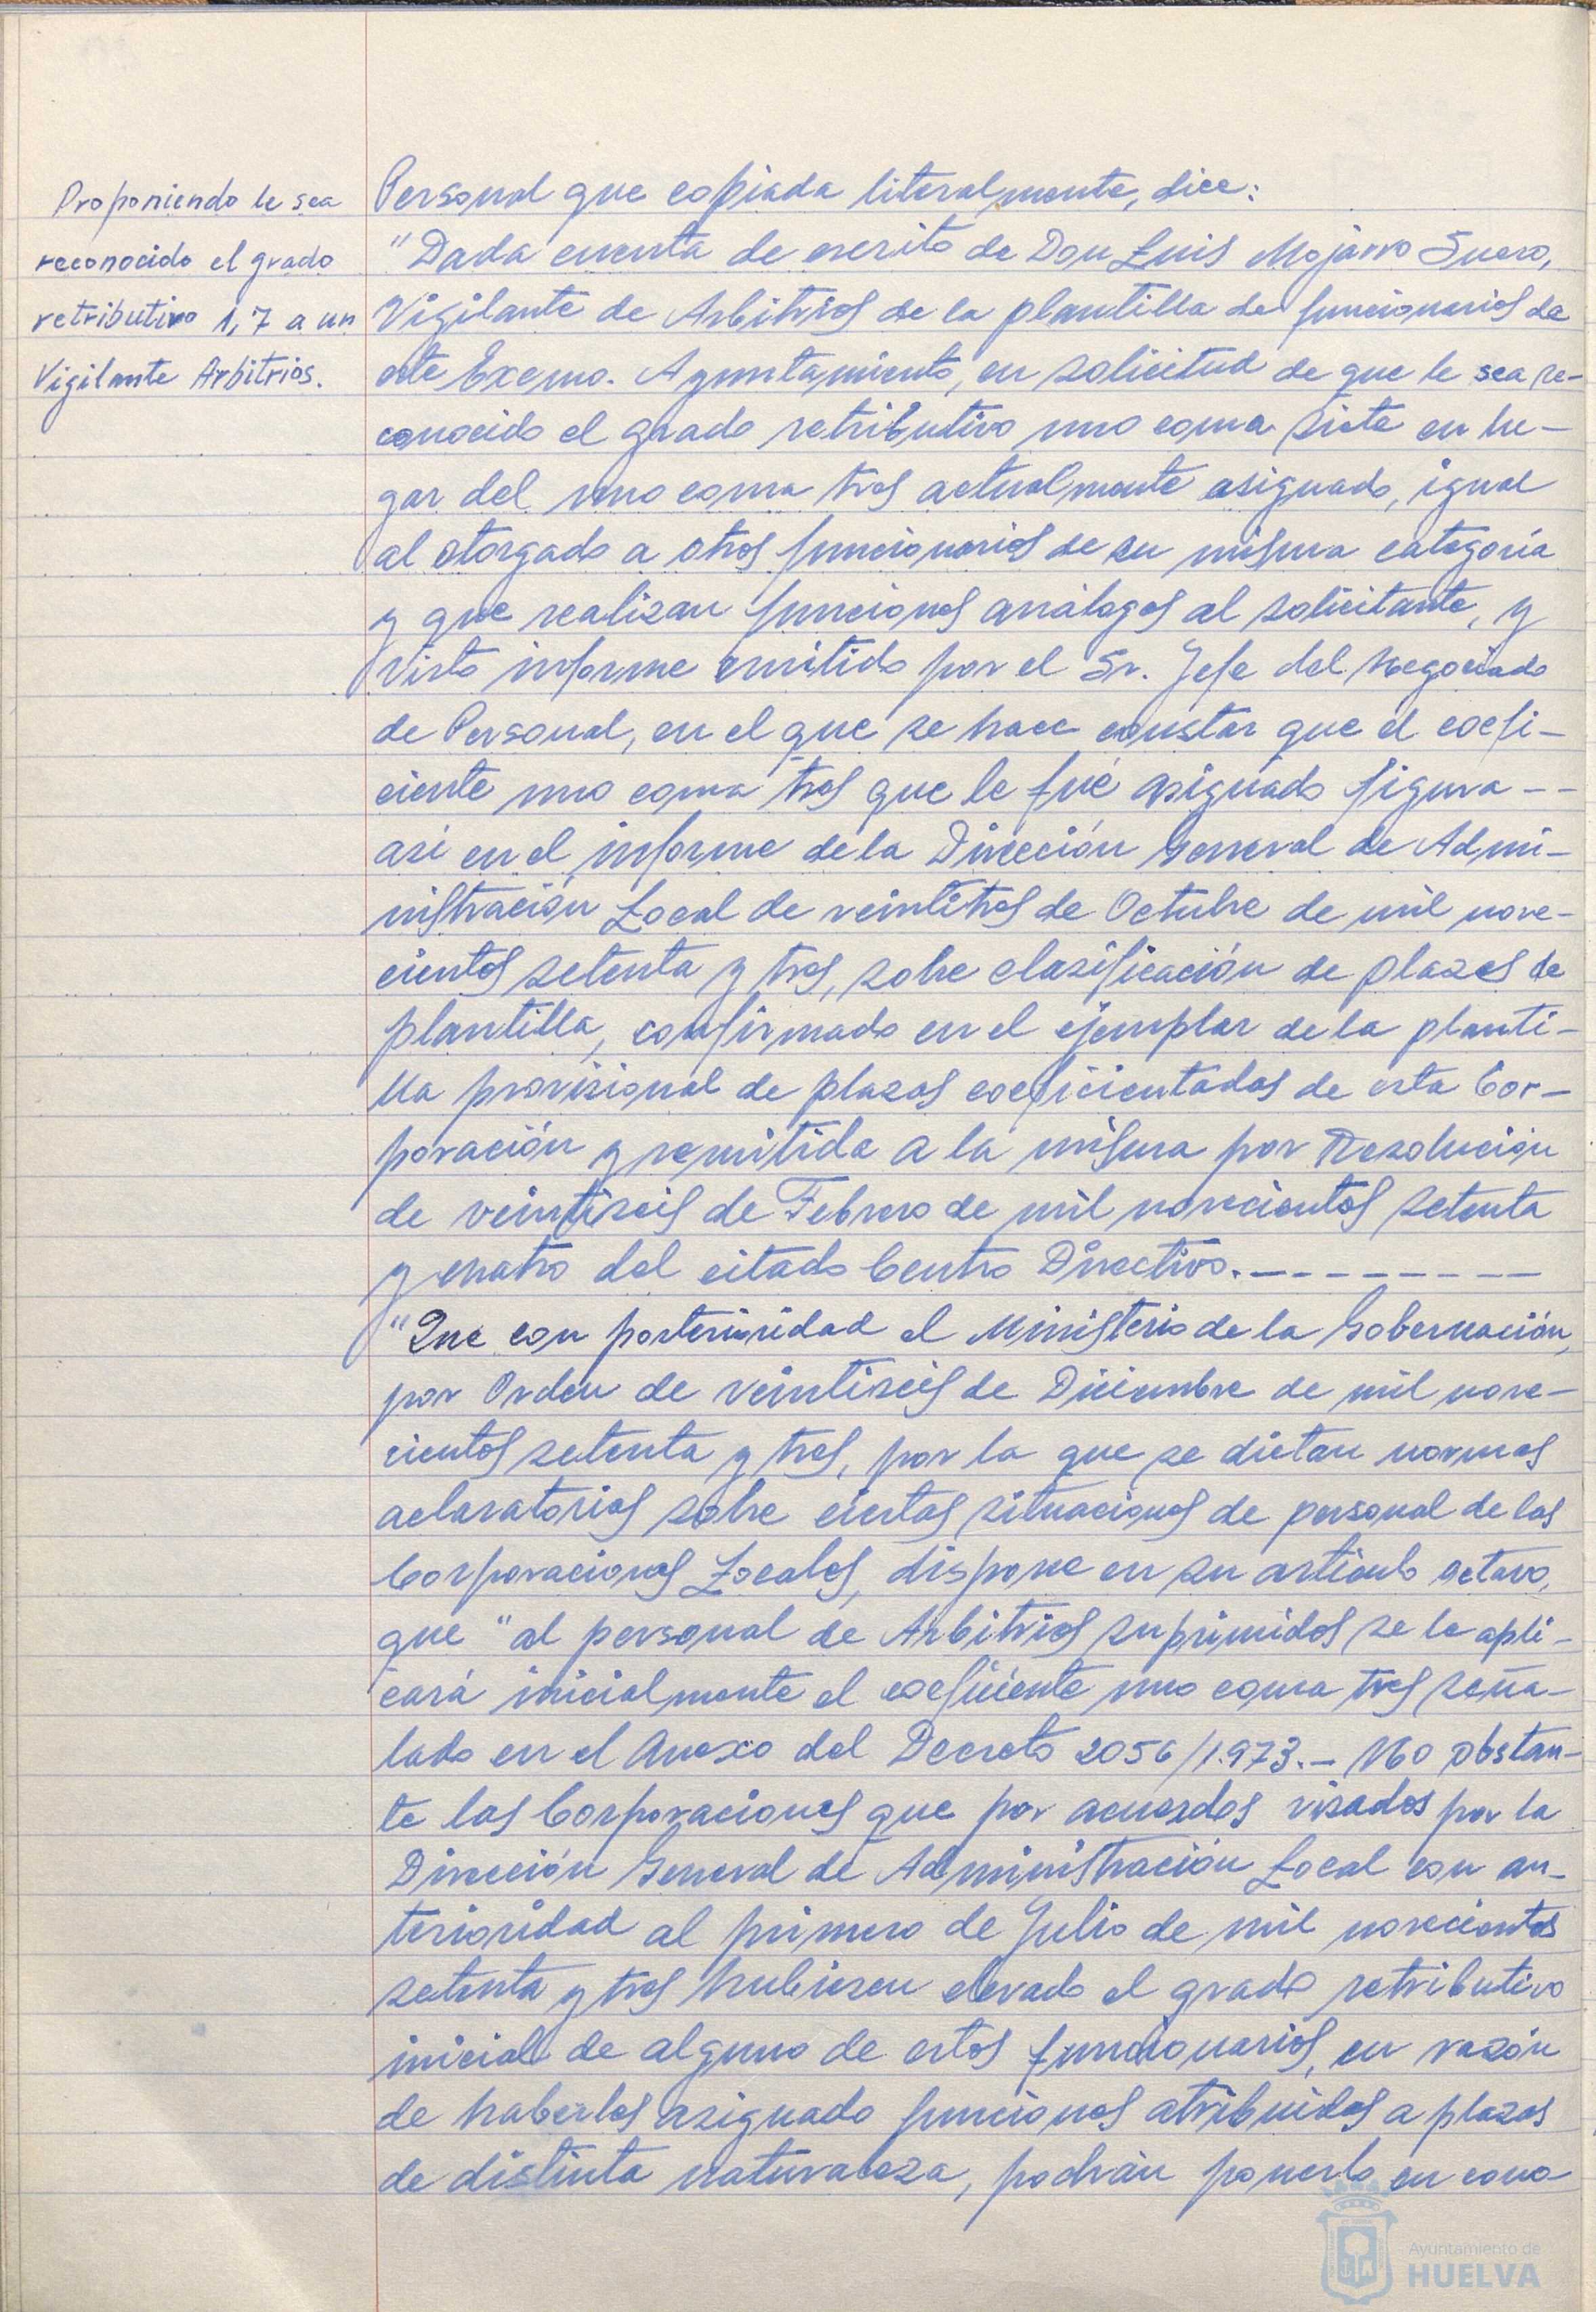 Proponiendo le sea
reconocido el grado
retributivo 1,7 a un
Vigilante Arbitrios.
Personal que copiada literalmente, dice:
"Dada cuenta de escrito de Don Luis Mojarro Suero,
Vigilante de Arbitrios de la plantilla de funcionarios de
este Excmo. Ayuntamiento, en solicitud de que le sea re-
conocido el grado retributivo uno coma siete en lu-
gar del uno coma tres actualmente asignado, igual
al otorgado a otros funcionarios de su misma categoría
y que realizan funciones análogas al solicitante, y
visto informe emitido por el Sr. Jefe del Negociado
de Personal, en el que se hace constar que el coefi-
ciente uno coma tres que le fué asignado figura --
así en el informe de la Dirección General de Admi-
nistración Local de veintitres de Octubre de mil nove-
cientos setenta y tres, sobre clasificación de plazas de
plantilla, confirmado en el ejemplar de la planti-
lla provisional de plazas coeficientadas de esta Cor-
poración y remitida a la misma por Resolución
de veintiseis de Febrero de mil novecientos setenta
y cuatro del citado Centro Directivo.---------
"Que con posterioridad el Ministerio de la Gobernación,
por Orden de veintiseis de Diciembre de mil nove-
cientos setenta y tres, por la que se dictan normas
aclaratorias sobre ciertas situaciones de personal de las
Corporaciones Locales, dispone en su artículo octavo,
que "al personal de Arbitrios suprimidos se le apli-
cará inicialmente el coeficiente uno coma tres seña-
lado en el Anexo del Decreto 2056/1.973.- No obstan-
te las Corporaciones que por acuerdos visados por la
Dirección General de Administración Local con an-
terioridad al primero de Julio de mil novecientos
setenta y tres hubiesen elevado el grado retributivo
inicial de alguno de estos funcionarios, en razón
de haberles asignado funciones atribuidas a plazas
de distinta naturaleza, podrán ponerlo en cono-
Ayuntamiento de
HUELVA